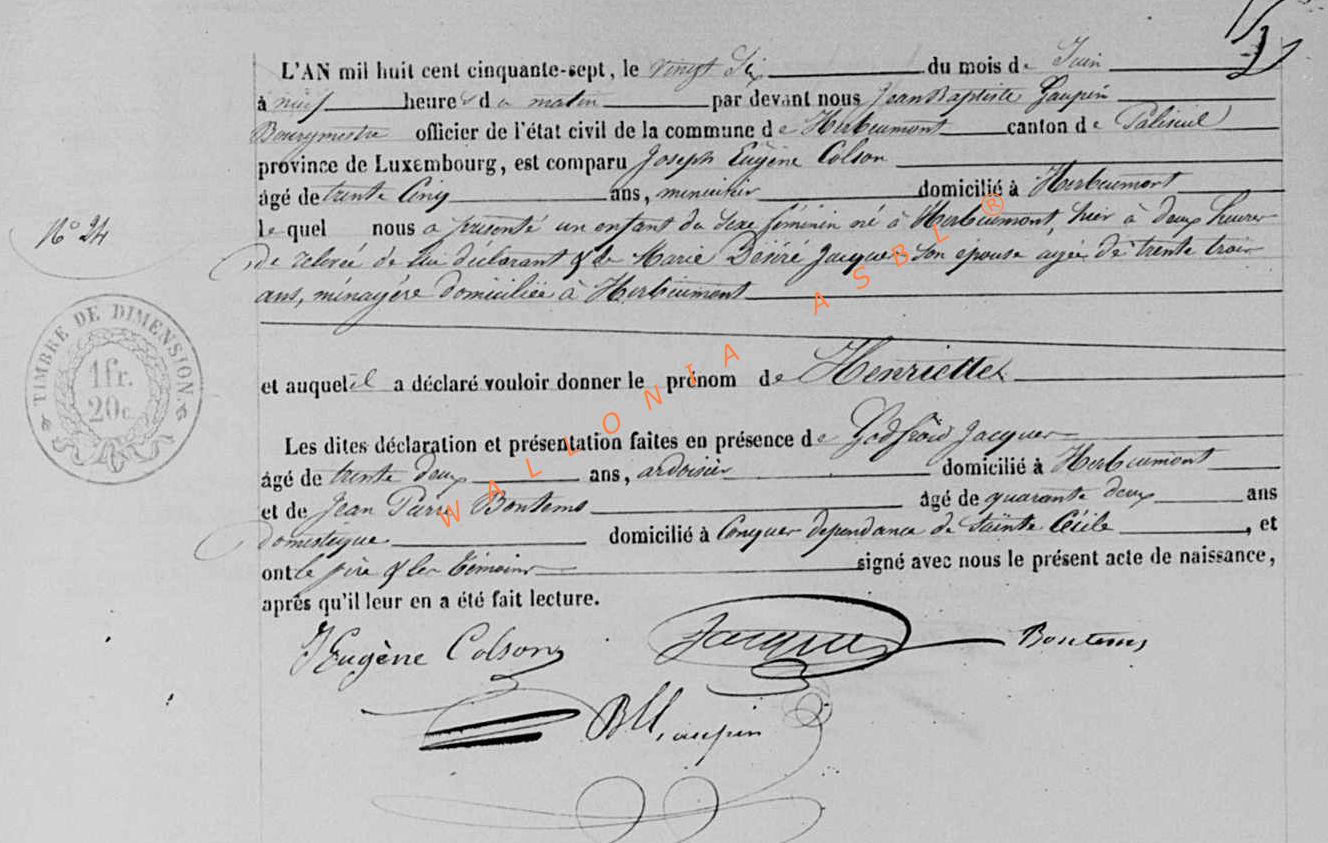 L'AN mil huit cent cinquante-sept, le vingt Six du mois de Juin
à neuf heures du matin par devant nous Jean Baptiste Gaupin
Bourgmestre officier de l'état civil de la commune de Herbeumont canton de Paliseul
province de Luxembourg, est comparu Joseph Eugène Colson
âgé de trente Cinq ans, menuisier domicilié à Herbeumont
le quel nous a présenté un enfant du sexe féminin né à Herbeumont, hier à deux heures
de relevée de lui déclarant & de Marie Désiré Jacques son épouse agée de trente trois
ans, ménagère domiciliée à Herbeumont
N° 24
TIMBRE DE DIMENSION.
1fr.
20c.
et auquel il a déclaré vouloir donner le prénom de Henriette
Les dites déclaration et présentation faites en présence de Godfroid Jacques
âgé de trente deux ans, ardoisier domicilié à Herbeumont
et de Jean Pierre Bontems âgé de quarante deux ans
domestique domicilié à Conques dépendance de Sainte Cécile, et
ont le père & les témoins signé avec nous le présent acte de naissance,
après qu'il leur en a été fait lecture.
JEugène Colson Jacques Bontems
Gaupin
WALLONIA ASBL ®